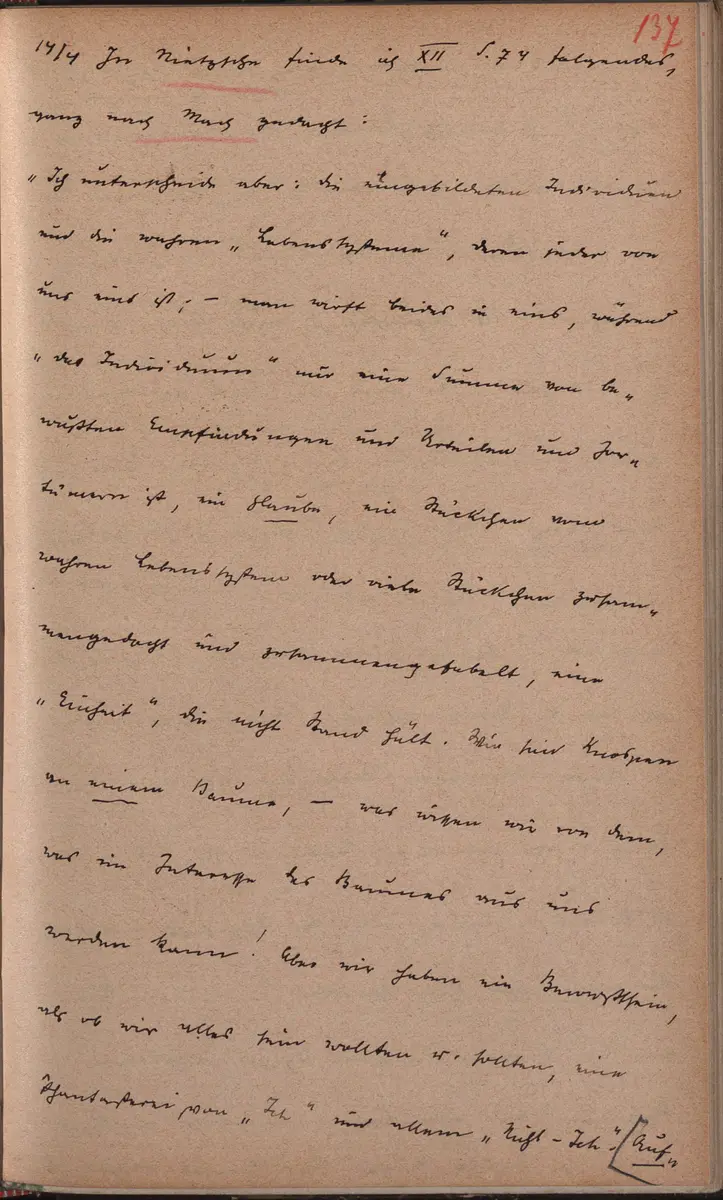 137
14/4 In Nietzsche finde ich XII S. 74 folgendes,
ganz nach Mach gedacht:
„Ich unterscheide aber: die eingebildeten Individuen
und die wahren „Lebenssysteme“, deren jeder von
uns eins ist; – man wirft beides in eins, während
„das Individuum“ nur eine Summe von be„
wußten Empfindungen und Urteilen und Irr„
tümern ist, ein Glaube, ein Stückchen vom
wahren Lebenssystem oder viele Stückchen zusam„
mengedacht und zusammengefabelt, eine
„Einheit“, die nicht Stand hält. Wir sind Knospen
an einem Baume, – was wissen wir von dem,
was im Interesse des Baumes aus uns
werden kann! Aber wir haben ein Bewußtsein,
als ob wir alles sein wollten u. sollten, eine
Phantasterei von „Ich“ und allem „Nicht-Ich“. [Auf„